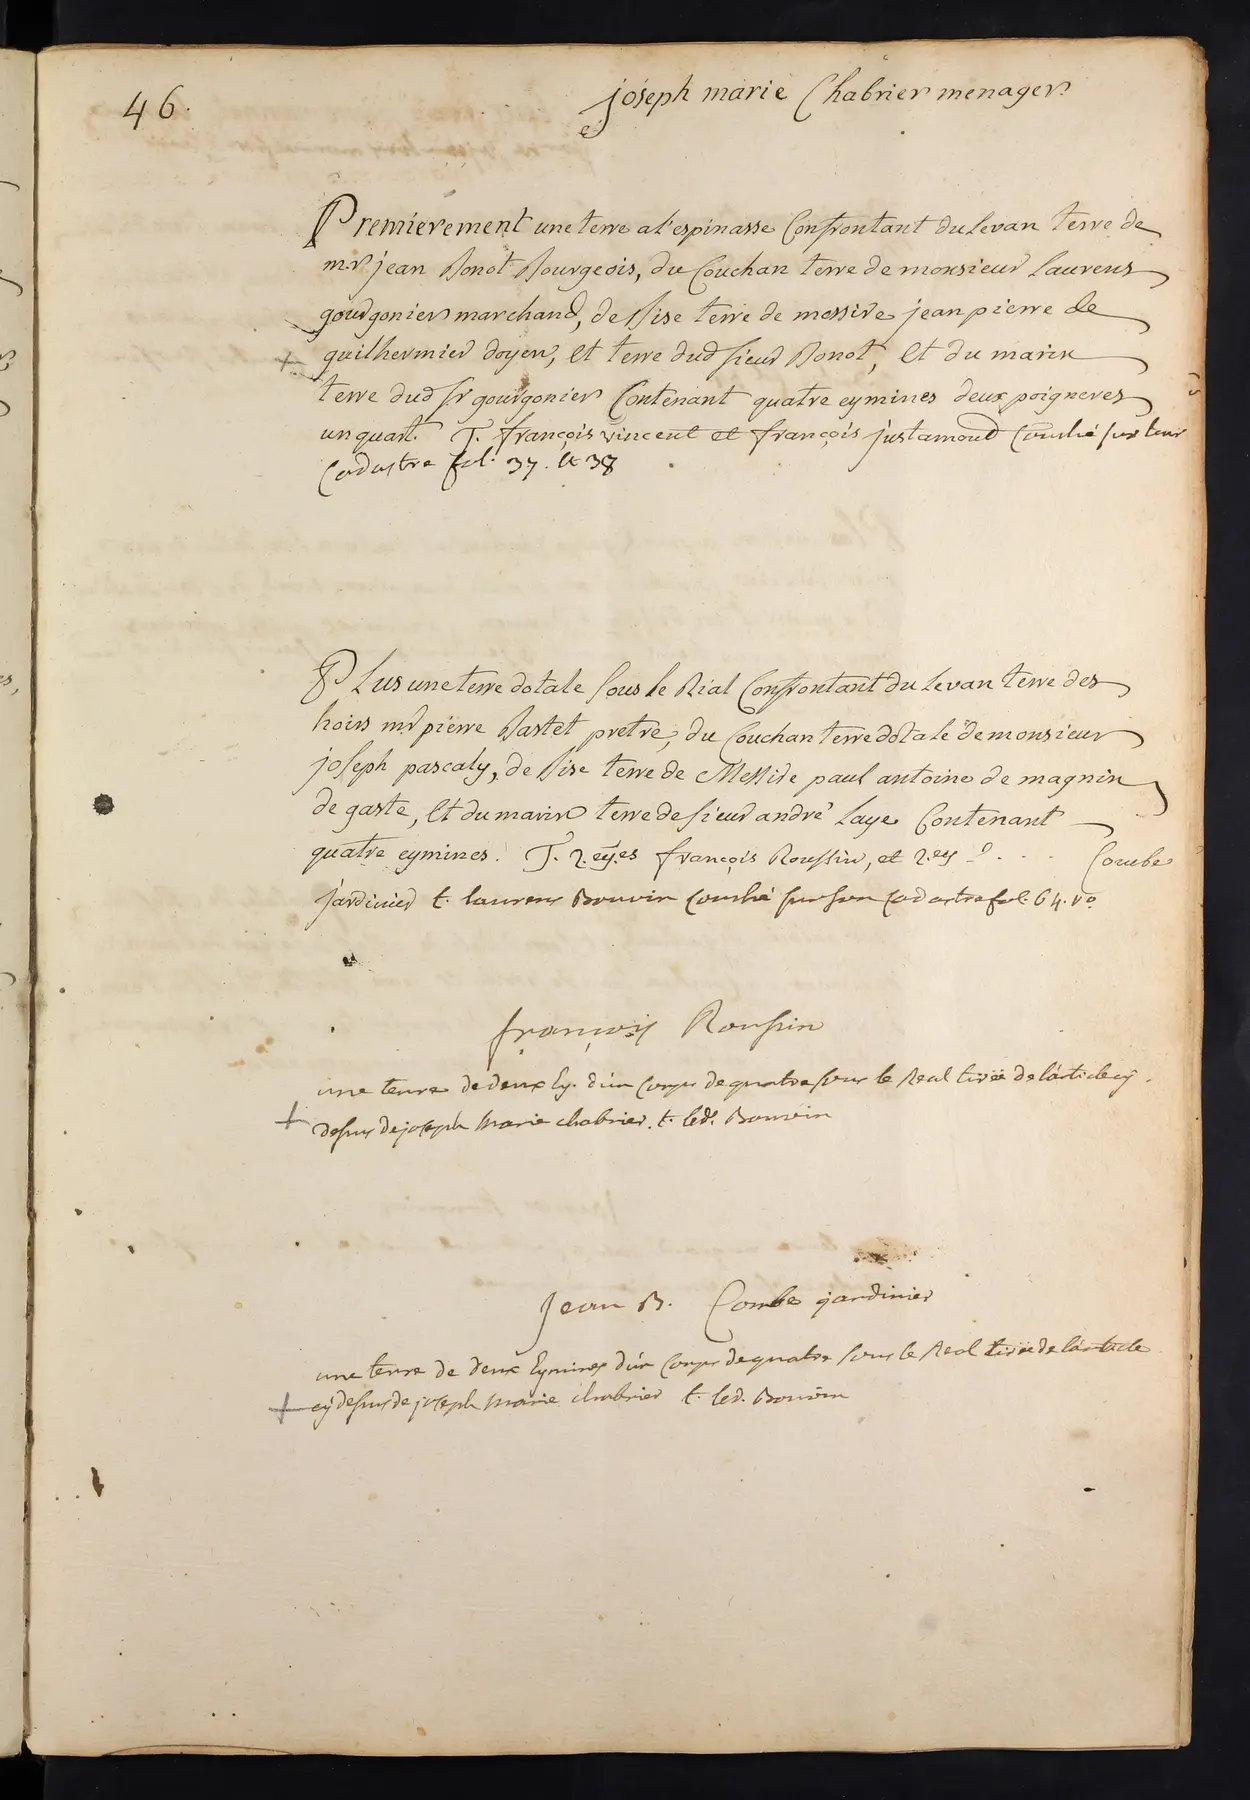 46.
joseph marie Chabrier menager
Premierement une terre a l'espinasse Confrontant du levan terre de
mr jean Bonot Bourgeois, du Couchan terre de monsieur Laurens
gourgonier marchand, de Bise terre de messire jean pierre de
guilhermier doyen, et terre dud sieur Bonot, et du marin
terre dud sr gourgonier Contenant quatre eymines deux poigneres
un quart. T. françois vincent et françois justamond Couché sur leur
Cadastre fol. 37. et 38
Plus une terre dotale sous le Rial Confrontant du levan terre des
hoirs mr pierre Bastet pretre, du Couchan terre dotale de monsieur
joseph pascaly, de Bise terre de Messire paul antoine de magnin
de gaste, et du marin terre de sieur andré Laye Contenant
quatre eymines. T. 2. eyes françois Roussin, et 2. ey ... Combe
jardinier t. laurens Bouvin couché sur son cadastre fol. 64. vo
françois Roussin
une terre de deux Ey. d'un corps de quatre sous le Real tirée de l'article cy
desus de joseph Marie chabrier. t. led. Bouvin
Jean B. Combe jardinier
une terre de deux Eymines d'un corps de quatre sous le Real tirée de l'article
cy desus de joseph Marie chabrier t. led. Bouvin